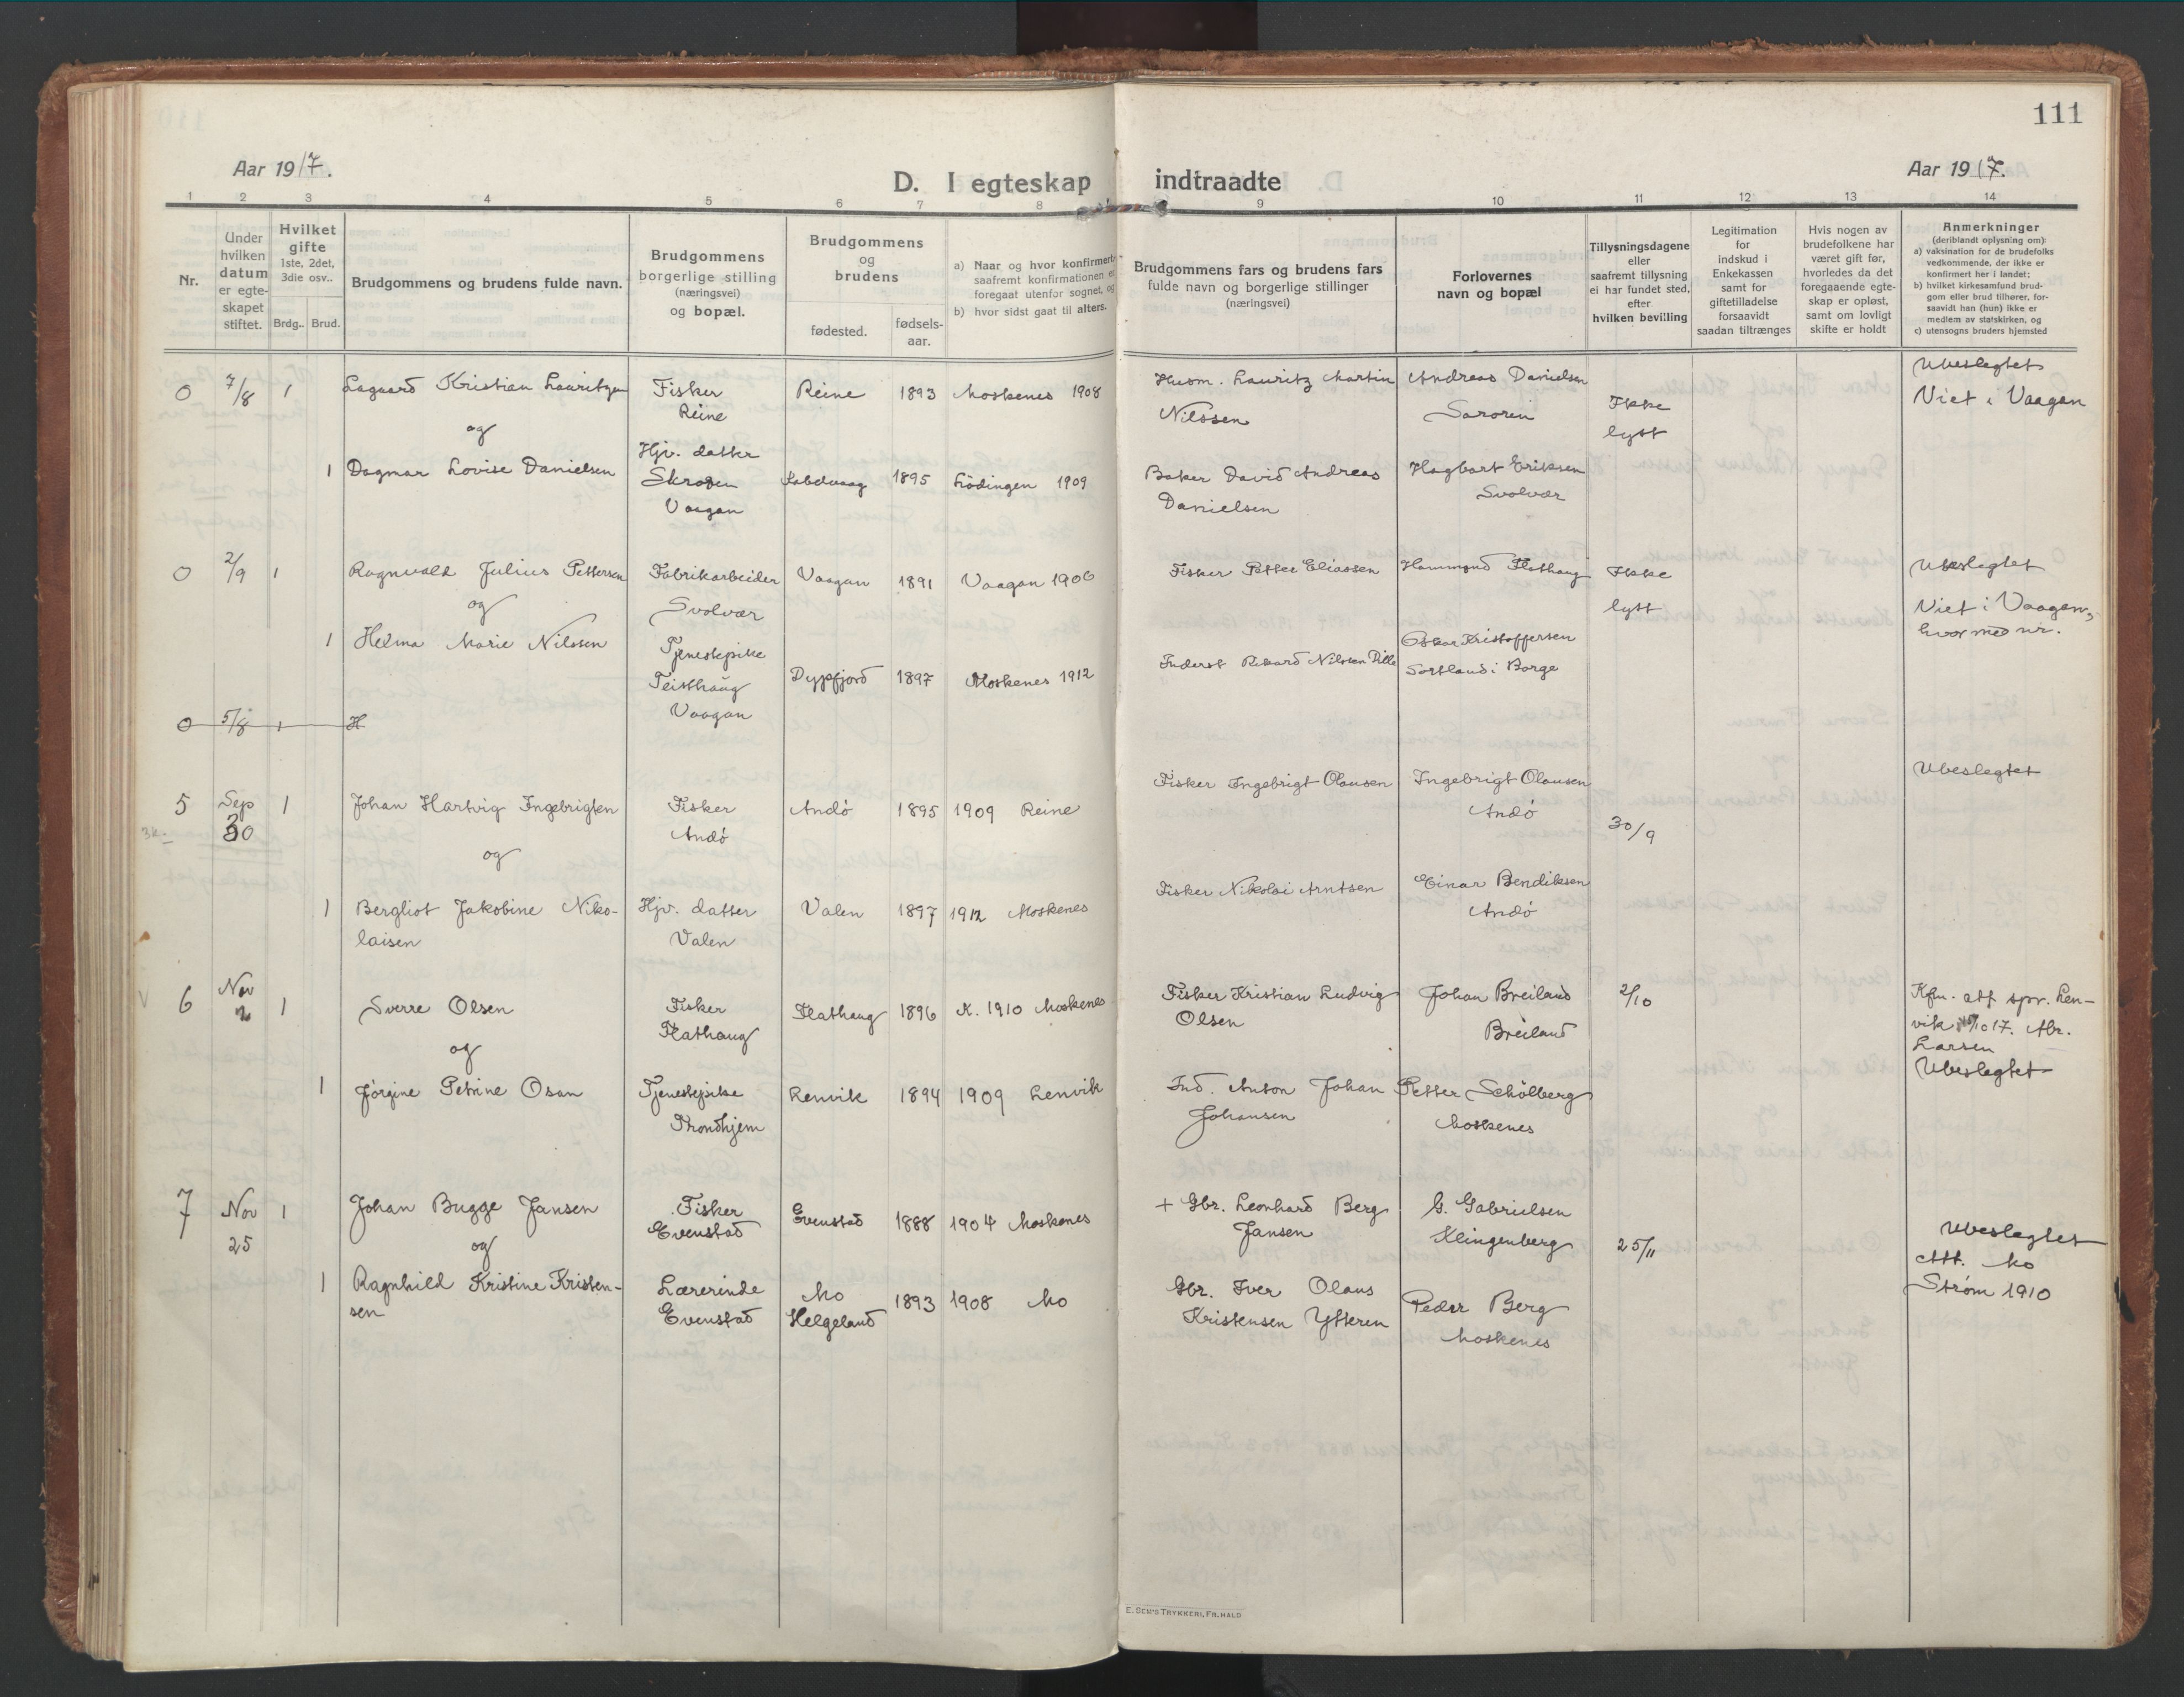 111
Aar 1917.
D. I egteskap indtraadte
Aar 1917.
1 2 3 4 5 6 7 8 9 10 11 12 13 14
Nr.
Under
hvilken
datum
er egte-
skapet
stiftet.
Hvilket
gifte
1ste, 2det,
3die osv..
Brdg.. Brud.
Brudgommens og brudens fulde navn.
Brudgommens
borgerlige stilling
(næringsvei)
og bopæl.
Brudgommens
og
brudens
fødested.
fødsels-
aar.
a) Naar og hvor konfirmert
saafremt konfirmationen e
foregaat utenfor sognet, og
b) hvor sidst gaat til alters.
Brudgommens fars og brudens fars
fulde navn og borgerlige stillinger
(næringsvei)
Forlovernes
navn og bopæl
Tillysningsdagene
eller
saafremt tillysning
ei har fundet sted,
efter
hvilken bevilling
Legitimation
for
indskud i
Enkekassen
samt for
giftetilladelse
forsaavidt
saadan tiltrænges
Hvis nogen av
brudefolkene har
været gift før,
hvorledes da det
foregaaende egte-
skap er opløst,
samt om lovligt
skifte er holdt
Anmerkninger
(deriblandt oplysning om):
a) vaksination for de brudefolks
vedkommende, der ikke er
konfirmert her i landet;
b) hvilket kirkesamfund brud-
gom eller brud tilhører, for-
saavidt han (hun) ikke er
medlem av statskirken, og
c) utensogns bruders hjemsted
0 7/8 1 Lagaard Kristian Lauritzen
og
1 Dagmar Lovise Danielsen
Fisker
Reine
Hjv. datter
Skroven
Vaagan
Reine 1893 Moskenes 1908
Kabelvaag 1895 Lödingen 1909
Husm. Lauritz Martin
Nilssen
Baker David Andreas
Danielsen
Andreas Danielsen
Hagbart Eriksen
Svolvær
Ikke
lyst
Ubeslegtet
Viet i Vaagan
0 2/9 1 Ragnvald Julius Pettersen
og
1 Helma Marie Nilssen
Fabrikarbeider
Svolvær
Tjenestepike
Teisthaug
Vaagan
Vaagan 1891 Vaagan 1906
Dypfjord 1897 Moskenes 1912
Fisker Petter Eliassen
Inderst Rikard Nilssen
Hammond Flathaug
Oskar Kristoffersen
Sortland i Borge
Ikke
lyst
Ubeslegtet
Viet i Vaagan,
hvor med nr.
0 5/8 1 H
5 Sep
30
1 Johan Hartvig Ingebrigten
og
1 Bergliot Jakobine Niko-
laisen
Fisker
Andö
Hjv. datter
Valen
Andö 1895 1909 Reine
Valen 1897 1912 Moskenes
Fisker Ingebrigt Olausen
Fisker Nikolai Arntsen
Ingebrigt Olausen
Andö
Einar Bendiksen
Andö
30/9
Ubeslegtet
6 Nov
2
1 Sverre Olsen
og
1 Jörgine Petrine Osan
Fisker
Flathaug
Tjenestepike
Trondhjem
Flathaug 1896 K. 1910 Moskenes
Lenvik 1894 1909 Lenvik
Fisker Kristian Ludvig
Olsen
Ind. Anton Johan
Johansen
Johan Breiland
Breiland
Petter Schölberg
Moskenes
2/10
Kfm. att spr. Len-
vik /10 17. Abr.
Larsen
Ubeslegtet
7 Nov
25
1 Johan Bugge Jansen
og
1 Ragnhild Kristine Kristen-
sen
Fisker
Evenstad
Lærerinde
Evenstad
Evenstad 1888 1904 Moskenes
Mo
Helgeland
1893 1908 Mo
+ Gbr. Leonhard Berg
Jansen
Gbr. Iver Olaus
Kristensen Ytteren
G. Gabrielsen
Klingenberg
Peder Berg
Moskenes
25/11
Ubeslegtet
Att. Mo
Strøm 1910
E. SEM'S TRYKKERI, FR. HALD